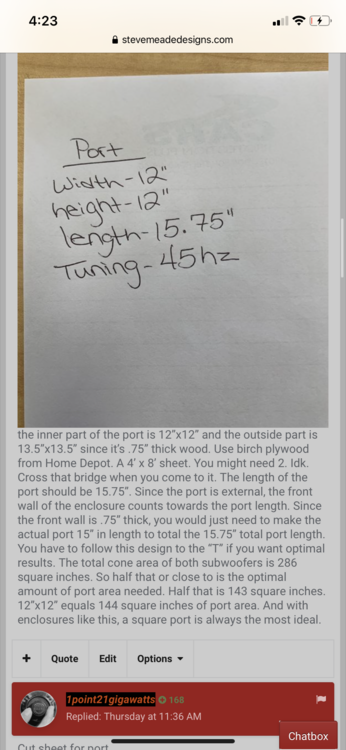 4:23
stevemeadedesigns.com
Port
width-12"
height-12"
length-15.75"
Tuning-45hz
the inner part of the port is 12”x12” and the outside part is
13.5”x13.5” since it’s .75” thick wood. Use birch plywood
from Home Depot. A 4’ x 8’ sheet. You might need 2. Idk.
Cross that bridge when you come to it. The length of the
port should be 15.75”. Since the port is external, the front
wall of the enclosure counts towards the port length. Since
the front wall is .75” thick, you would just need to make the
actual port 15” in length to total the 15.75” total port length.
You have to follow this design to the “T” if you want optimal
results. The total cone area of both subwoofers is 286
square inches. So half that or close to is the optimal
amount of port area needed. Half that is 143 square inches.
12”x12” equals 144 square inches of port area. And with
enclosures like this, a square port is always the most ideal.
+ Quote Edit Options
1point21gigawatts 168
Replied: Thursday at 11:36 AM
Chatbox
Cut sheet for port